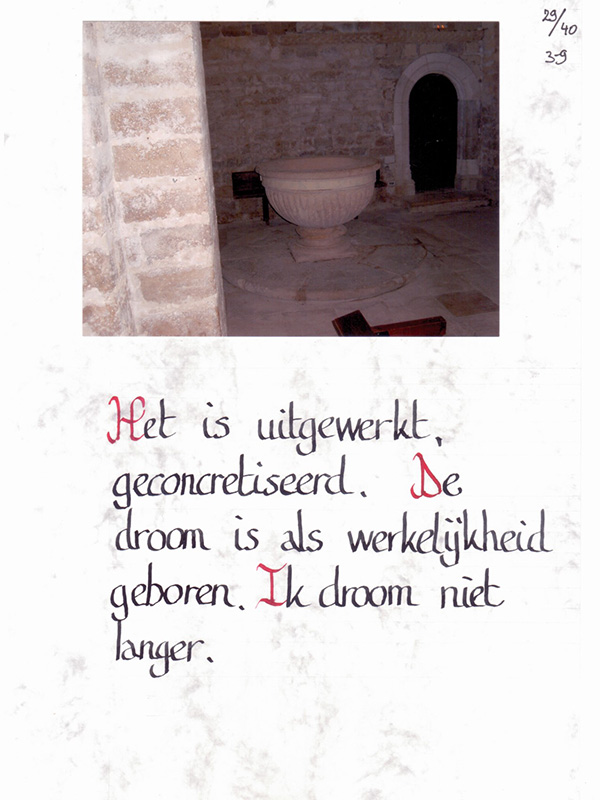 29/40
3-9
Het is uitgewerkt,
geconcretiseerd. De
droom is als werkelijkheid
geboren. Ik droom niet
langer.